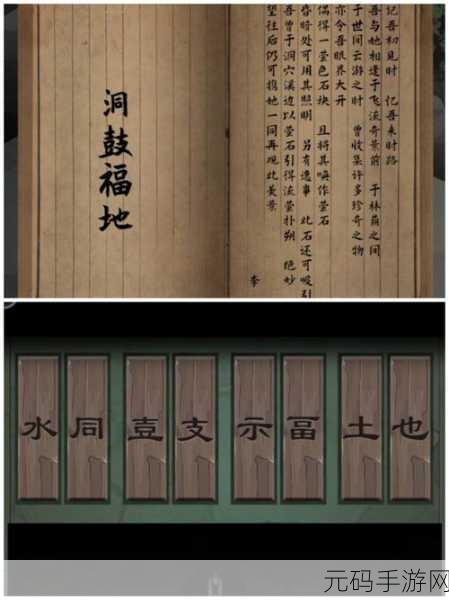 记吾初见时 记吾来时路
吾与她相逢于飞流奇景前 于林荫之间
于世间云游之时 曾收集许多珍奇之物
亦令吾眼界大开
偶得一莹色石块 且将其唤作萤石
昏暗处可用其照明 另有逸事 此石还可吸引
吾曾于洞穴溪边以萤石引得流萤扑朔 绝妙
望往后仍可携她一同再观此美景
李
洞鼓福地
水同壴支示畐土也
元码手游网